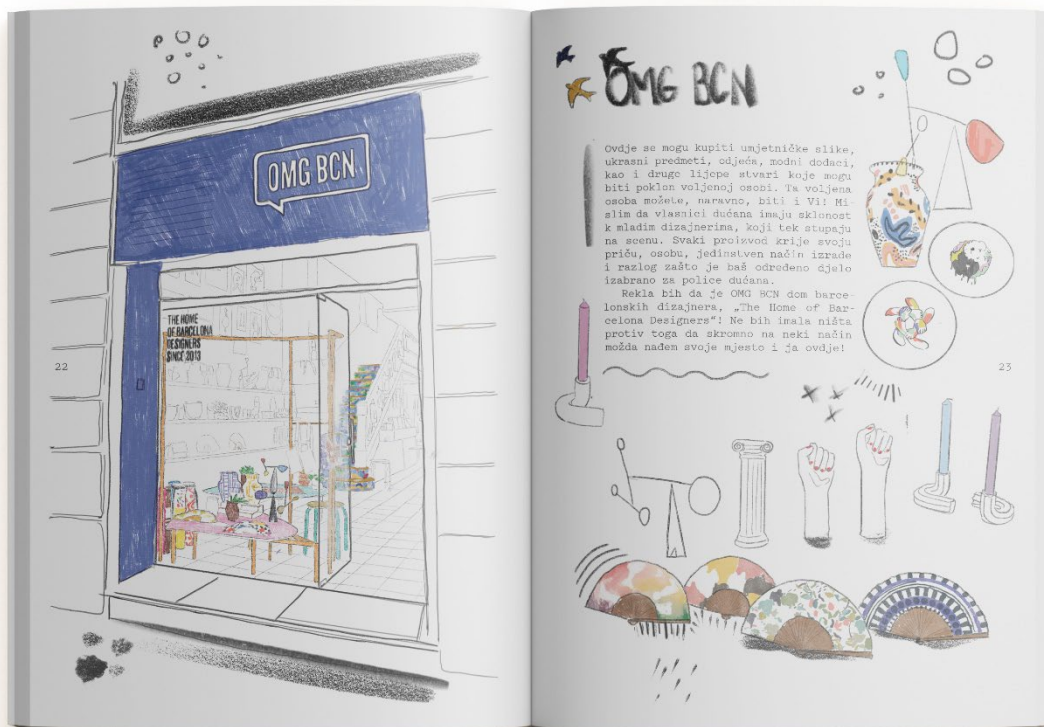 OMG BCN
THE HOME
OF BARCELONA
DESIGNERS
SINCE 2013
22
OMG BCN
Ovdje se mogu kupiti umjetničke slike,
ukrasni predmeti, odjeća, modni dodaci,
kao i druge lijepe stvari koje mogu
biti poklon voljenoj osobi. Ta voljena
osoba možete, naravno, biti i Vi! Mi-
slim da vlasnici dućana imaju sklonost
k mladim dizajnerima, koji tek stupaju
na scenu. Svaki proizvod krije svoju
priču, osobu, jedinstven način izrade
i razlog zašto je baš određeno djelo
izabrano za police dućana.
Rekla bih da je OMG BCN dom barce-
lonskih dizajnera, „The Home of Bar-
celona Designers“! Ne bih imala ništa
protiv toga da skromno na neki način
možda nađem svoje mjesto i ja ovdje!
23